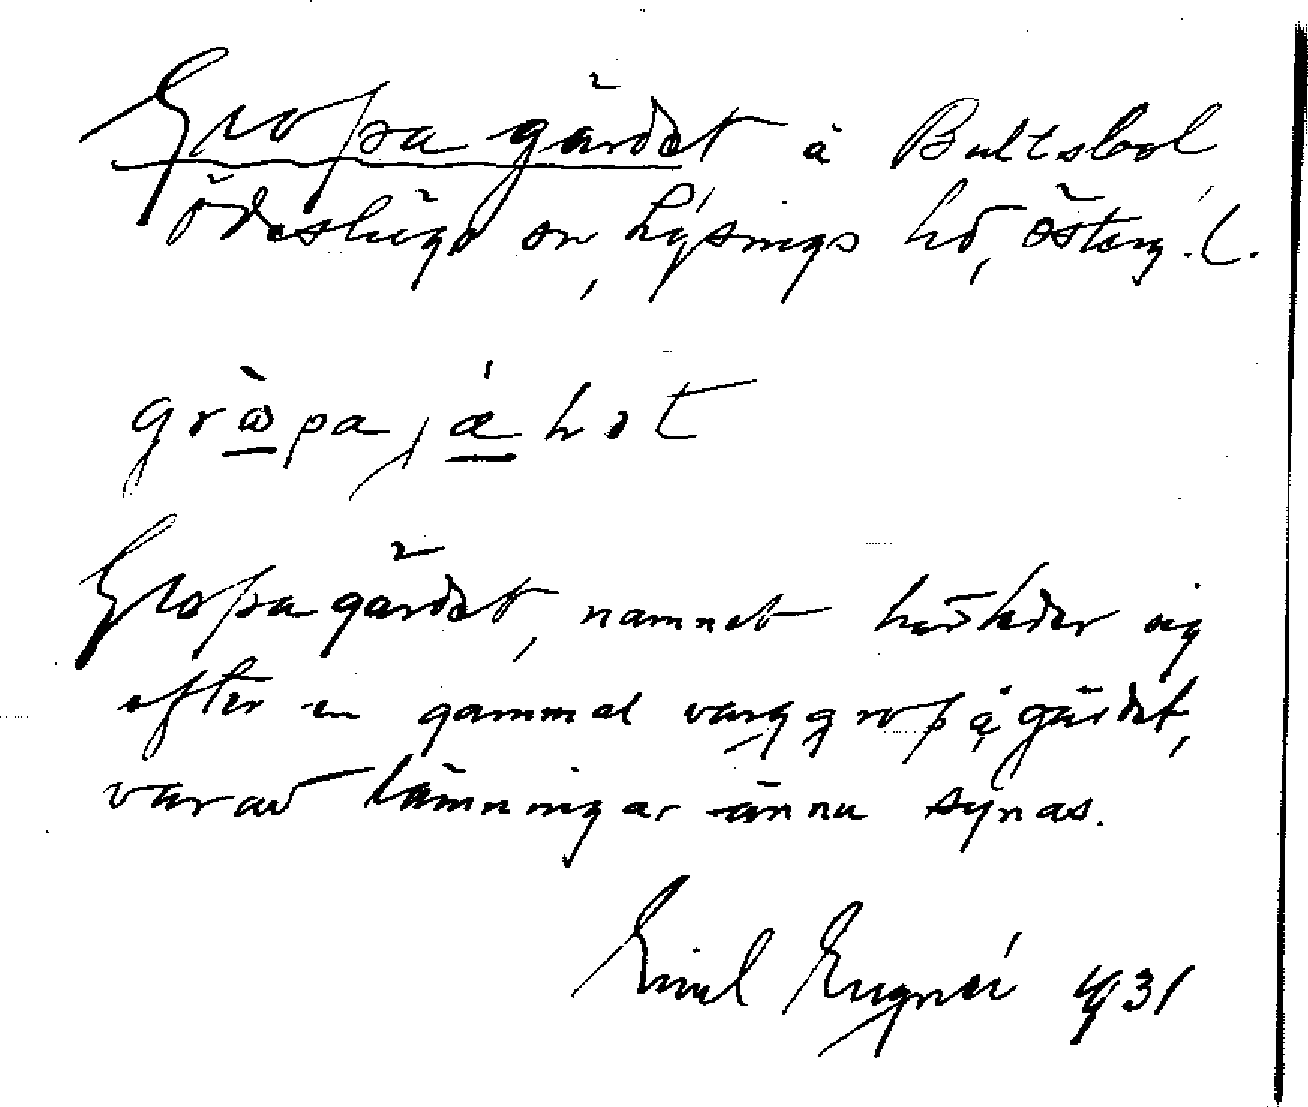 Gropagärdet å Bultsbol
Ödeshögs sn, Lysings hd, Österg. l.
grωpajähət
Gropagärdet, namnet härleder sig
efter en gammal varggrop å gärdet,
varav lämningar ännu synas.
Emil 1931